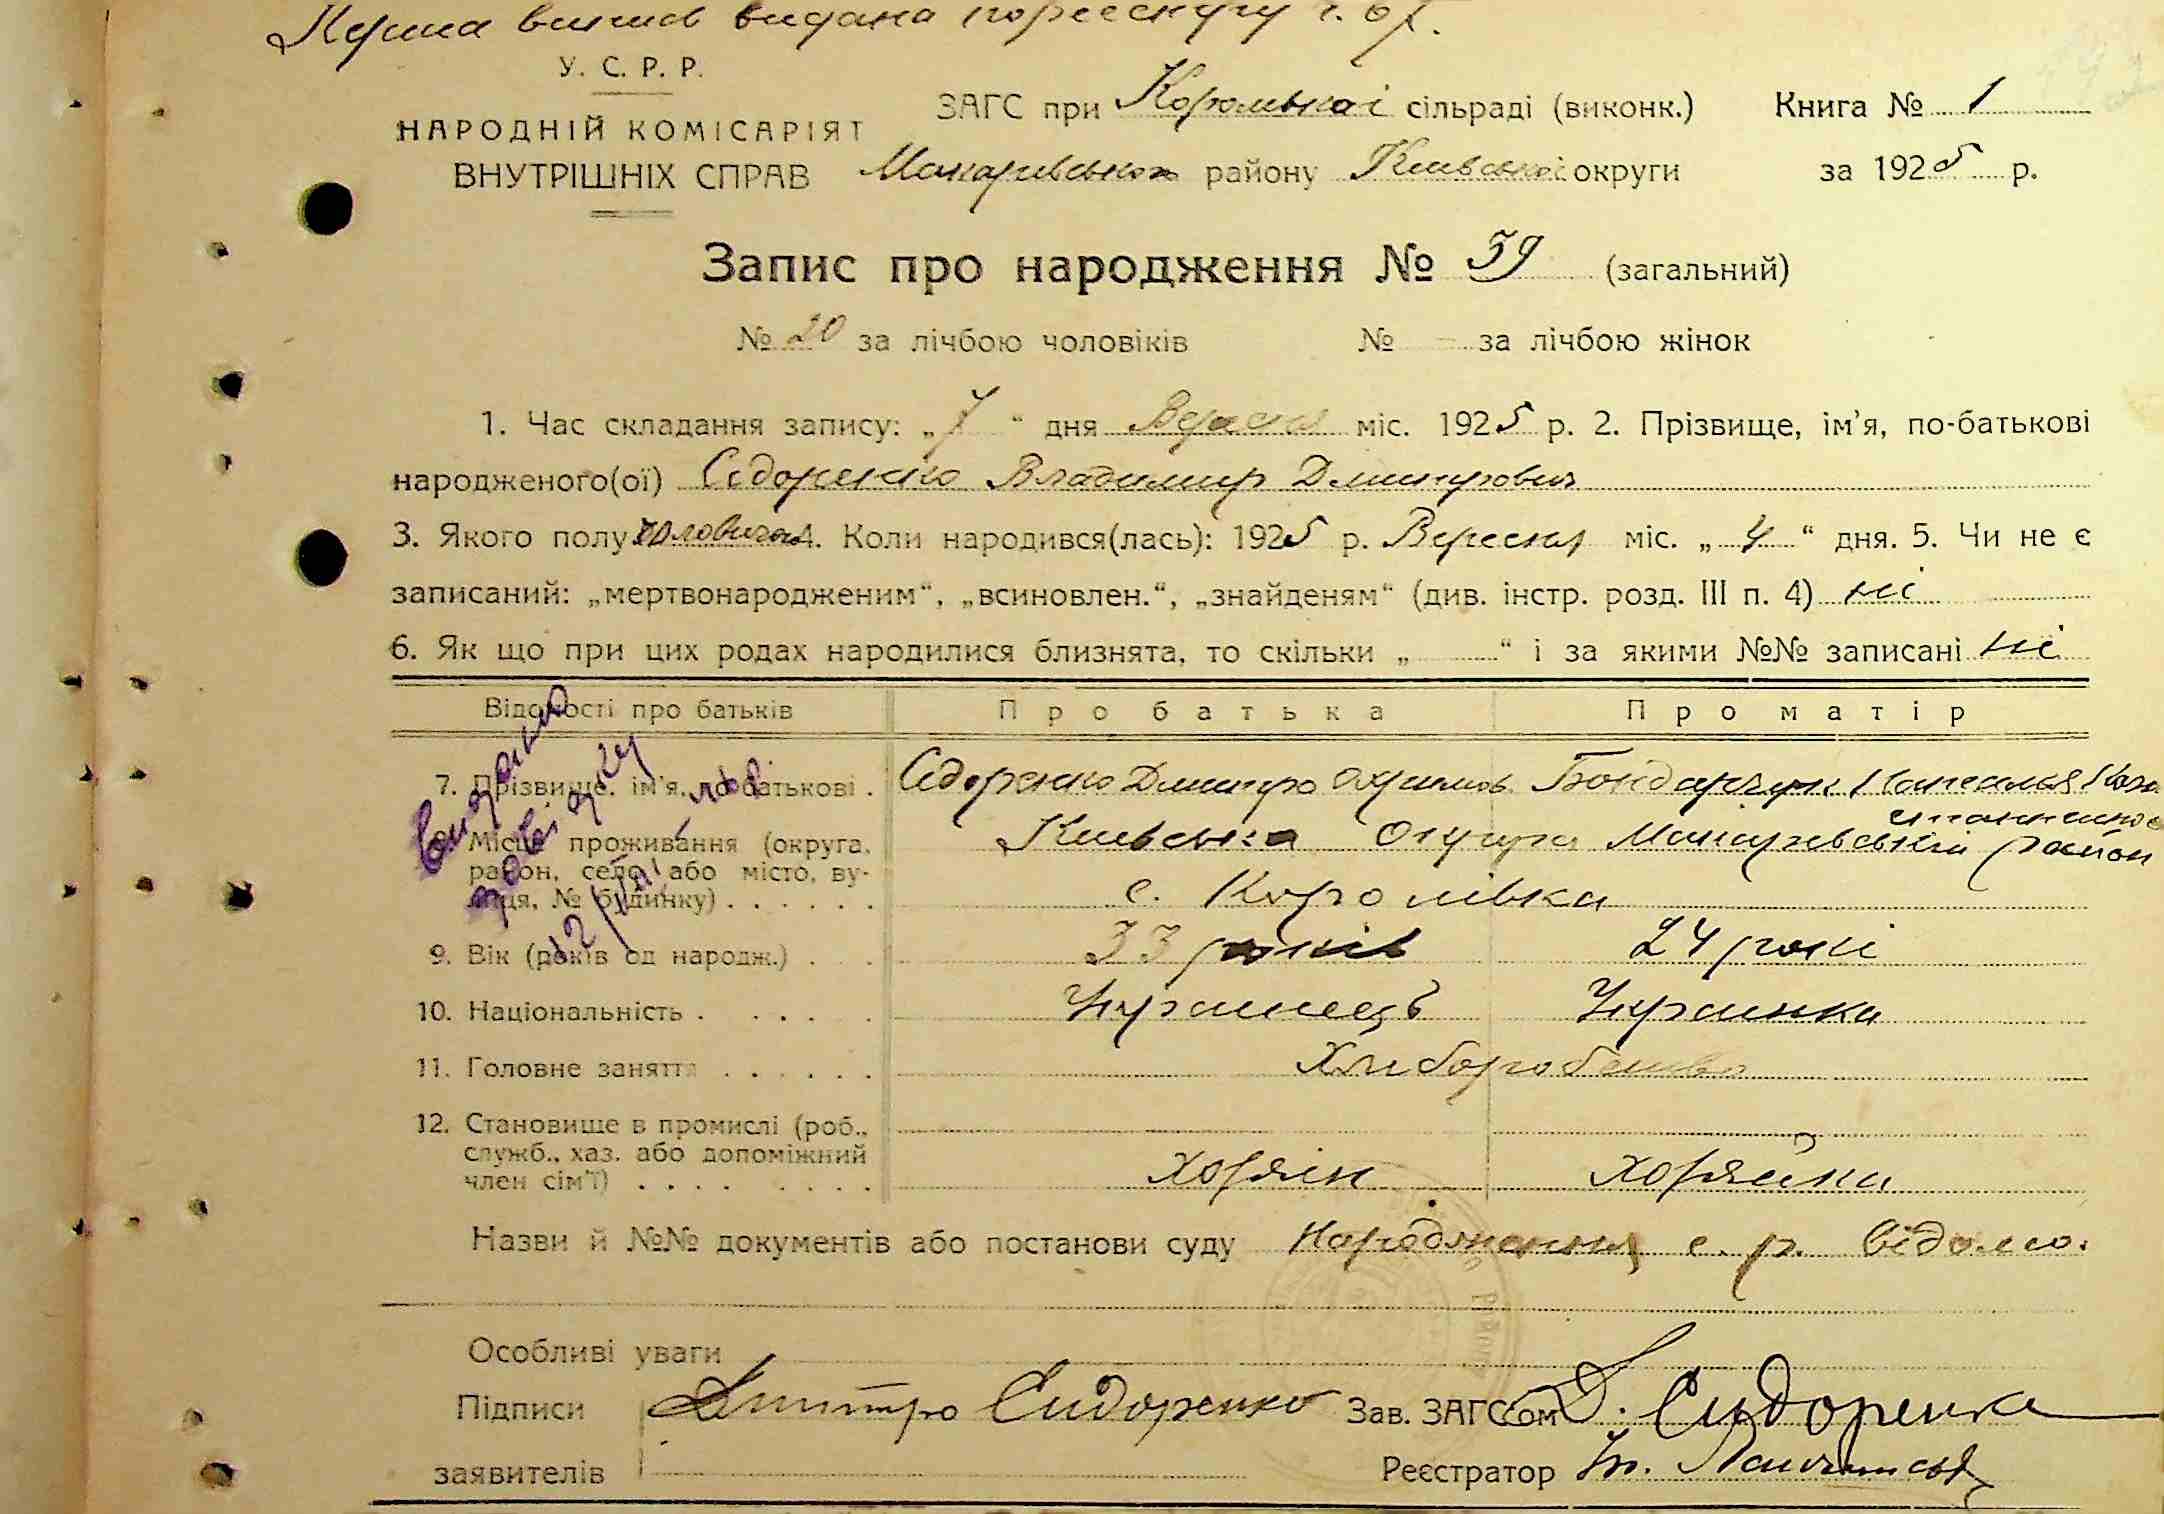 видана
У. С. Р. Р.
НАРОДНІЙ КОМІСАРІЯТ
ВНУТРІШНІХ СПРАВ
ЗАГС при Королівській сільраді (виконк.) Книга № 1
Макарівського району Київської округи за 1925 р.
Запис про народження № 39 (загальний)
№ 20 за лічбою чоловіків № - за лічбою жінок
1. Час складання запису: „7“ дня Вересня міс. 1925 р. 2. Прізвище, ім'я, по-батькові
народженого(ої) Сідоренко Владимир Дмитрович
3. Якого полу чоловичого 4. Коли народився(лась): 1925 р. Вересня міс. „4“ дня. 5. Чи не є
записаний: „мертвонародженим“, „всиновлен.“, „знайденям“ (див. інстр. розд. III п. 4) ні
6. Як що при цих родах народилися близнята, то скільки „ “ і за якими №№ записані ні
Відомості про батьків Про батька Про матір
7. Прізвище, ім'я, по-батькові . Сідоренко Дмитро Бондарчук Наталья
8. Місце проживання (округа, район, село, або місто, вулиця, № будинку) . . . . . . Київська Округа Макарівський район
с. Королівка
9. Вік (років од народж.) . . 33 років 24 рокі
10. Національність . . . . . Украинець Украинка
11. Головне заняття . . . . . . Хлиборобство
12. Становище в промислі (роб., служб., хаз. або допоміжний член сім'ї) . . . . . . . . хозяін хозяйка
видано
довідку
Назви й №№ документів або постанови суду Народження с. р. відомо.
Особливі уваги
Підписи Дмитро Сидоренко Зав. ЗАГСом Д. Сидоренко
заявителів Реєстратор